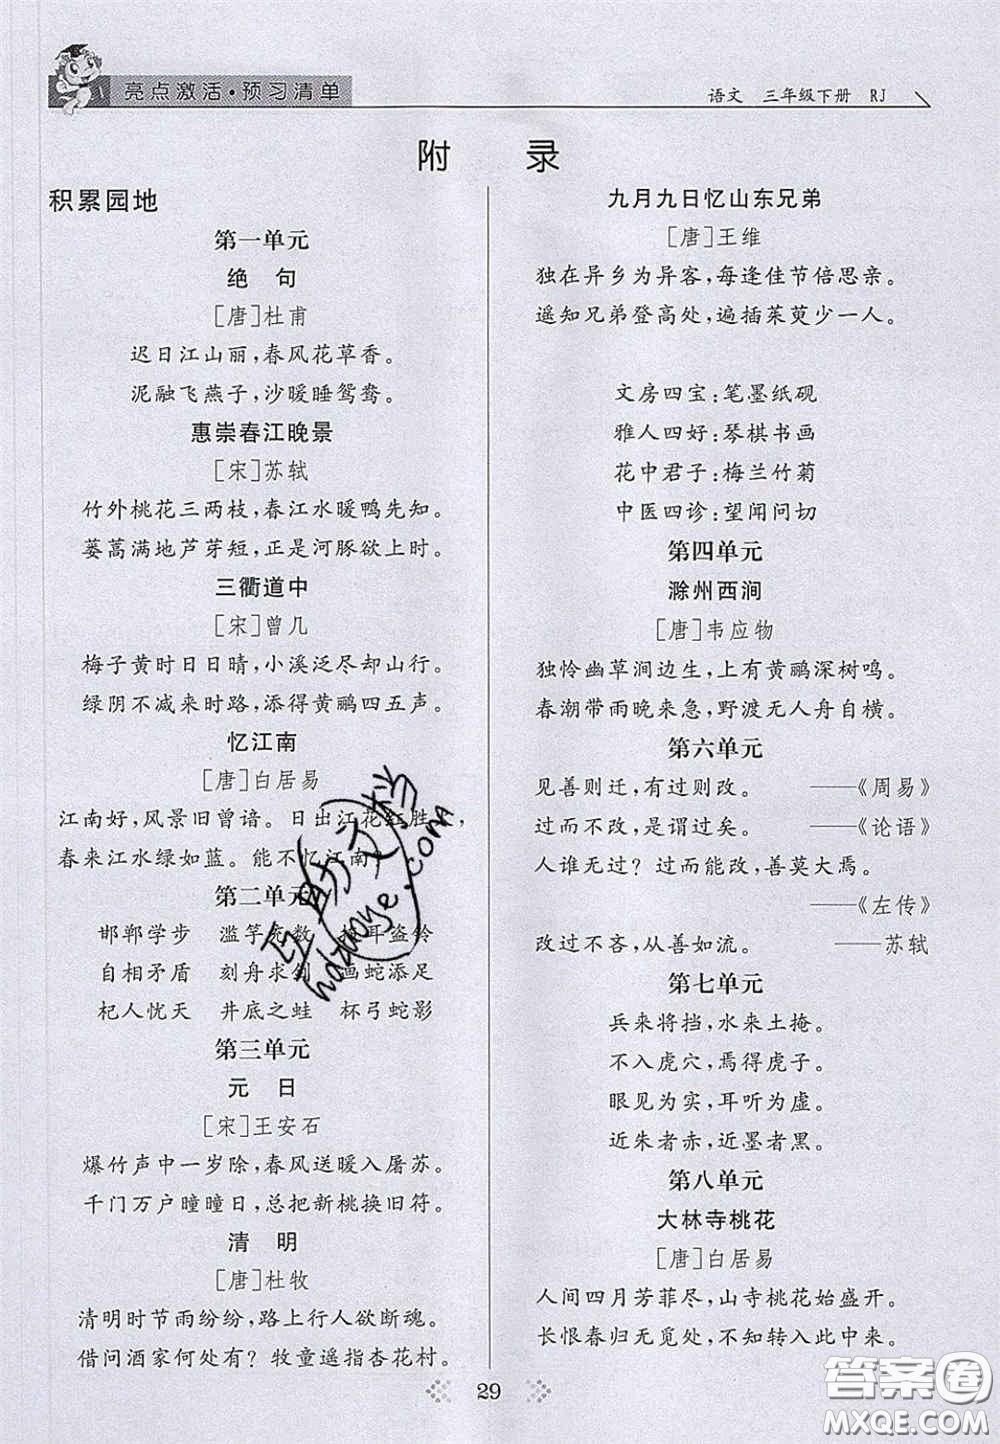 亮点激活·预习清单
语文 三年级下册 RJ
附 录
积累园地
第一单元
绝 句
[唐]杜甫
迟日江山丽,春风花草香。
泥融飞燕子,沙暖睡鸳鸯。
惠崇春江晚景
[宋]苏轼
竹外桃花三两枝,春江水暖鸭先知。
蒌蒿满地芦芽短,正是河豚欲上时。
三衢道中
[宋]曾几
梅子黄时日日晴,小溪泛尽却山行。
绿阴不减来时路,添得黄鹂四五声。
忆江南
[唐]白居易
江南好,风景旧曾谙。日出江花红胜 ,
春来江水绿如蓝。能不忆江南?
第二单元
邯郸学步 滥竽充数 耳盗铃
自相矛盾 刻舟求剑 画蛇添足
杞人忧天 井底之蛙 杯弓蛇影
第三单元
元 日
[宋]王安石
爆竹声中一岁除,春风送暖入屠苏。
千门万户曈曈日,总把新桃换旧符。
清 明
[唐]杜牧
清明时节雨纷纷,路上行人欲断魂。
借问酒家何处有?牧童遥指杏花村。
九月九日忆山东兄弟
[唐]王维
独在异乡为异客,每逢佳节倍思亲。
遥知兄弟登高处,遍插茱萸少一人。
文房四宝:笔墨纸砚
雅人四好:琴棋书画
花中君子:梅兰竹菊
中医四诊:望闻问切
第四单元
滁州西涧
[唐]韦应物
独怜幽草涧边生,上有黄鹂深树鸣。
春潮带雨晚来急,野渡无人舟自横。
第六单元
见善则迁,有过则改。 ——《周易》
过而不改,是谓过矣。 ——《论语》
人谁无过?过而能改,善莫大焉。
——《左传》
改过不吝,从善如流。 ——苏轼
第七单元
兵来将挡,水来土掩。
不入虎穴,焉得虎子。
眼见为实,耳听为虚。
近朱者赤,近墨者黑。
第八单元
大林寺桃花
[唐]白居易
人间四月芳菲尽,山寺桃花始盛开。
长恨春归无觅处,不知转入此中来。
29
互助文档
hdzuoye.com
答案圈
MXQE.COM